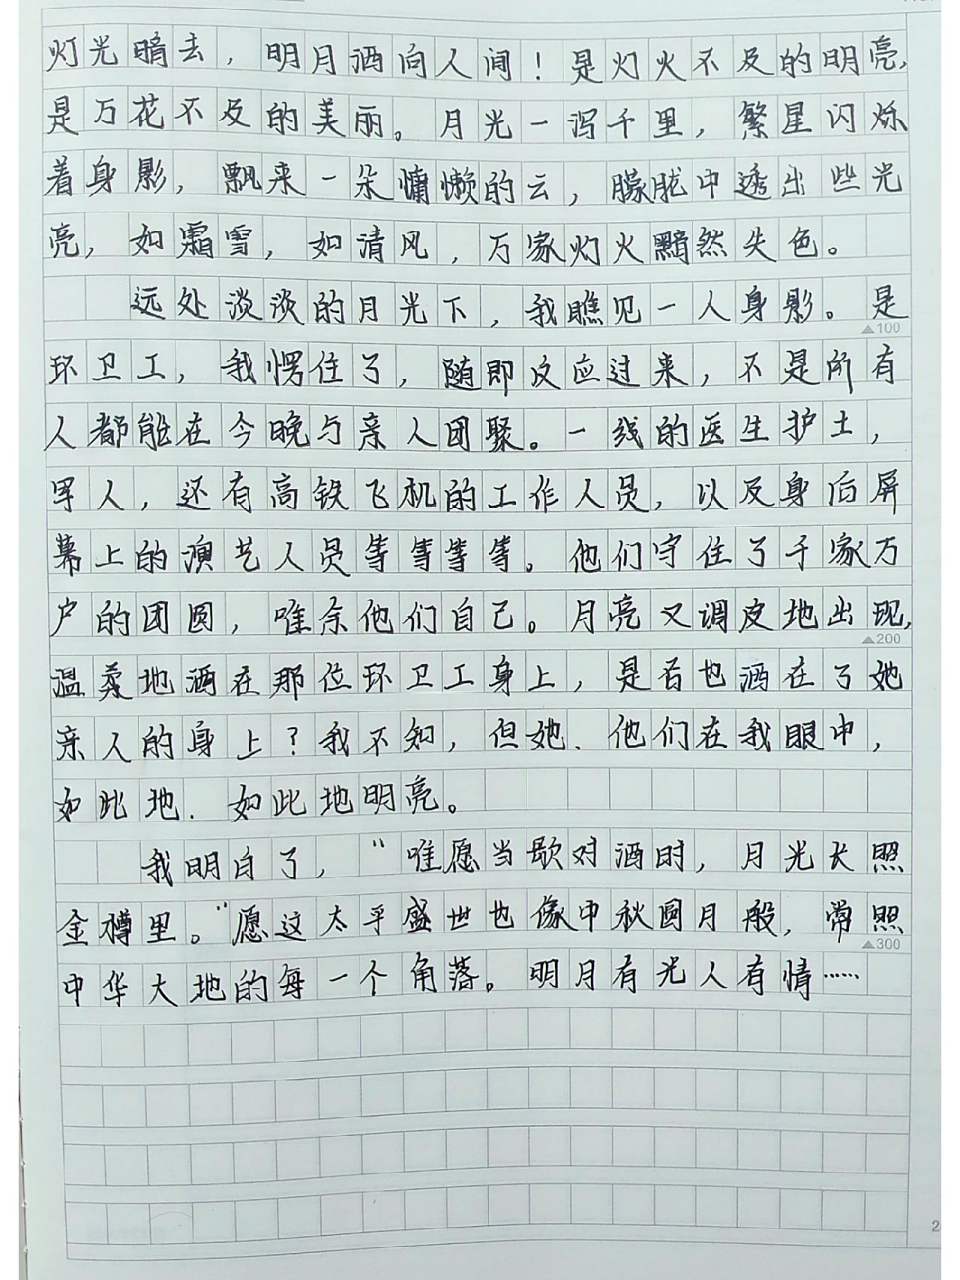 灯光暗去，明月洒向人间！是灯火不及的明亮，
是万花不及的美丽。月光一泻千里，繁星闪烁
着身影，飘来一朵慵懒的云，朦胧中透出些光
亮，如霜雪，如清风，万家灯火黯然失色。
远处淡淡的月光下，我瞧见一人身影。是
100
环卫工，我愣住了，随即反应过来，不是所有
人都能在今晚与亲人团聚。一线的医生护士，
军人，还有高铁飞机的工作人员，以及身后屏
幕上的演艺人员等等等等。他们守住了千家万
户的团圆，唯余他们自己。月亮又调皮地出现，
200
温柔地洒在那位环卫工身上，是否也洒在了她
亲人的身上？我不知，但她、他们在我眼中，
如此地、如此地明亮。
我明白了，“唯愿当歌对酒时，月光长照
金樽里。”愿这太平盛世也像中秋圆月般，常照
300
中华大地的每一个角落。明月有光人有情……
2